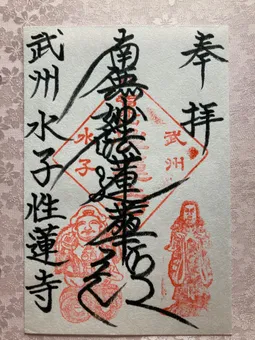 奉拝
南無妙法蓮華経
武州
水子
武州水子性蓮寺